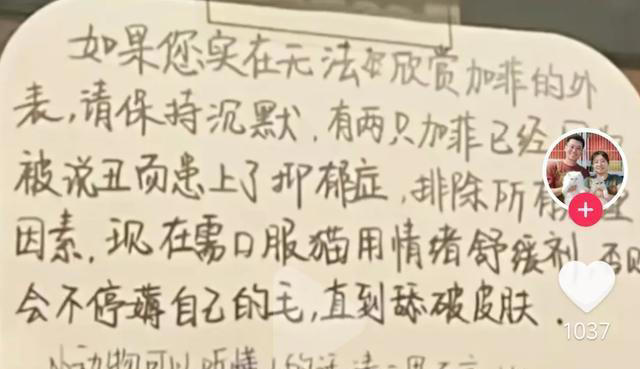 如果您实在无法欣赏加菲的外
表,请保持沉默.有两只加菲已经因为
被说丑而患上了抑郁症,排除所有
因素,现在需口服猫用情绪舒缓剂,否则
会不停薅自己的毛,直到舔破皮肤.
小动物可以听懂人的话
1037